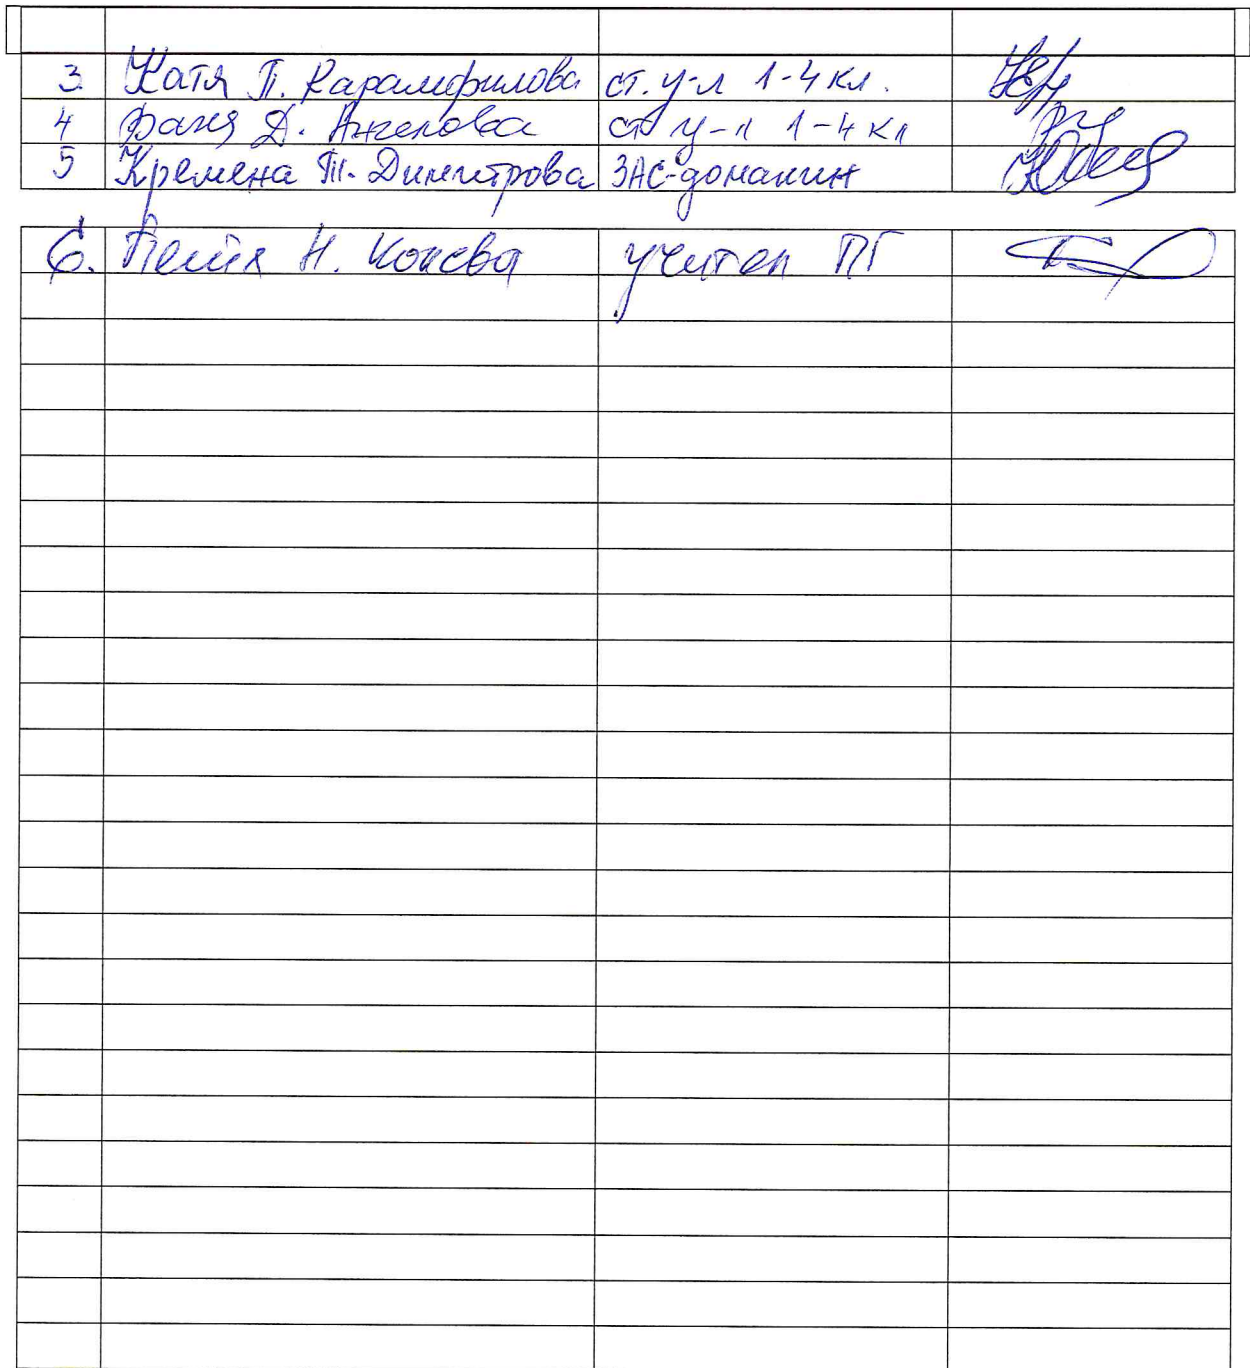 3. Катя П. Карамфилова ст. у-л 1-4 кл.
4 Ваня Д. Ангелова ст у-л 1-4 кл
5 Кремена Т. Димитрова ЗАС-домакин
6. Пепа Н. Конева учител ПГ